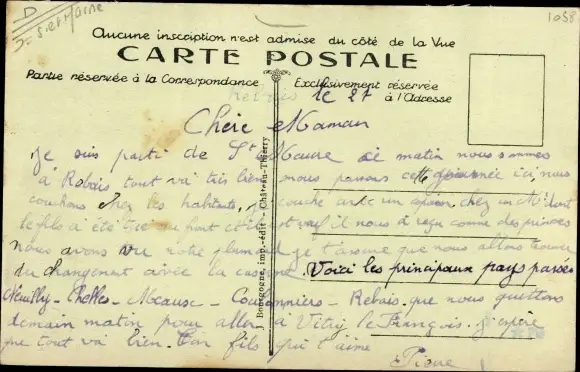 D
S. et Marne
1058
Aucune inscription n'est admise du côté de la Vue
CARTE POSTALE
Partie réservée à la Correspondance
Exclusivement réservée
à l'Adresse
Rebais le 27
Chère Maman
Je suis parti de St Maure ce matin nous sommes
à Rebais tout va très bien nous passons cette journée ici nous
couchons chez les habitants, je couche avec un copain chez un Mr dont
le fils a été tué au front et il nous a reçu comme des princes
nous avons vu je t'assure que nous allons trouver
du changement avec la caserne. Voici les principaux pays passés
Neuilly - Chelles - Meaux - Coulommiers - Rebais. que nous quittons
demain matin pour aller à Vitry le François. j'espère
que tout va bien. Ton fils qui t'aime
Pierre
J. Bourgogne, imp.-édit - Château-Thierry